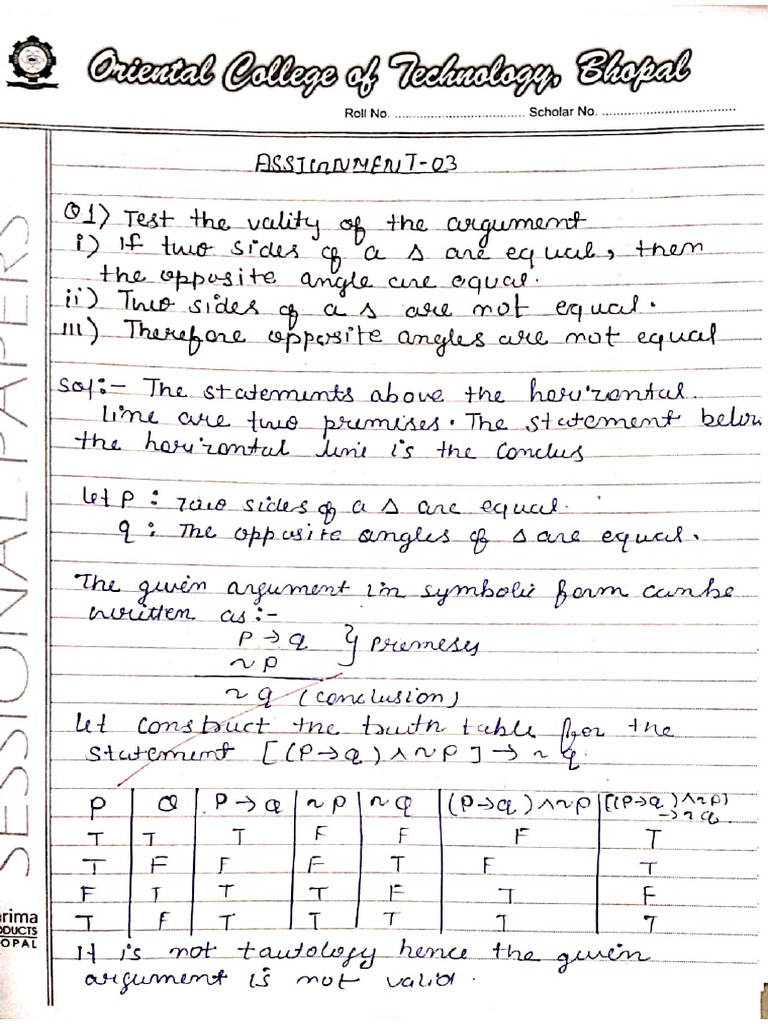 Oriental College of Technology, Bhopal
Roll No. .................................... Scholar No. .....................................
ASSIGNMENT-03
Q1) Test the vality of the argument
i) If two sides of a Δ are equal, then
the opposite angle are equal.
ii) Two sides of a Δ are not equal.
III) Therefore opposite angles are not equal
Sol:- The statements above the horizontal
line are two premises. The statement below
the horizontal line is the Conclus
let P : Two sides of a Δ are equal.
q : The opposite angles of Δ are equal.
The given argument in symbolic form can be
written as:-
P → q } Premeses
~ P
~ q (conclusion)
Let construct the truth table for the
Statement [(P→q) ∧ ~P] → ~q
P Q P→q ~P ~q (P→q)∧~P [(P→q)∧~P] →~q
T T T F F F T
T F F F T F T
F T T T F T F
T F T T T T T
It is not tautology hence the given
argument is not valid.
SESSIONAL PAPERS
erima
ODUCTS
OPAL